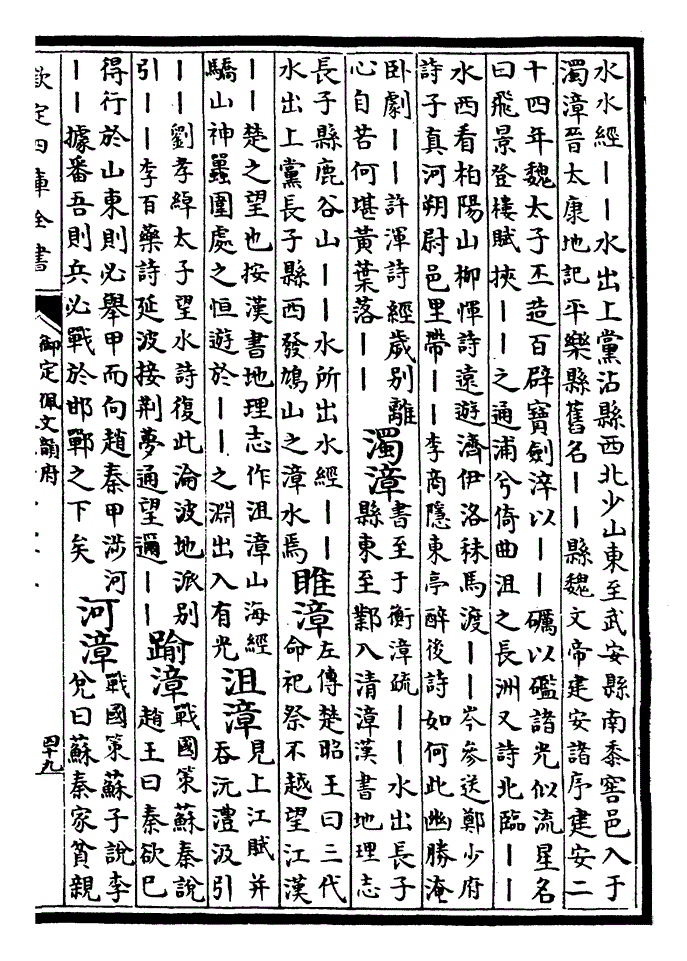 水水經丨丨水出上黨沾縣西北少山東至武安縣南黍窖邑入于
濁漳晉太康地記平樂縣舊名丨丨縣魏文帝建安諸序建安二
十四年魏太子丕造百辟寶劍淬以丨丨礪以礛諸光似流星名
曰飛景登樓賦挾丨丨之通浦兮倚曲沮之長洲又詩北臨丨丨
水西看柏陽山柳惲詩遠遊濟伊洛秣馬渡丨丨岑參送鄭少府
詩子真河朔尉邑里帶丨丨李商隱東亭醉後詩如何此幽勝淹
卧劇丨丨許渾詩經歲别離
心自苦何堪黃葉落丨丨
濁漳
書至于衡漳疏丨丨水出長子
縣東至鄴入清漳漢書地理志
長子縣鹿谷山丨丨水所出水經丨丨
水出上黨長子縣西發鳩山之漳水焉
睢漳
左傳楚昭王曰三代
命祀祭不越望江漢
丨丨楚之望也按漢書地理志作沮漳山海經
驕山神圍處之恒遊於丨丨之淵出入有光
沮漳
見上江賦并
吞沅澧汲引
丨丨劉孝綽太子望水詩復此淪波地派别
引丨丨李百藥詩延波接荆夢通望邇丨丨
踰漳
戰國策蘇秦說
趙王曰秦欲已
得行於山東則必舉甲而向趙秦甲涉河
丨丨據番吾則兵必戰於邯鄲之下矣
河漳
戰國策蘇子說李
兌曰蘇秦家貧親
欽定四庫全書
御定佩文韻府
四十九